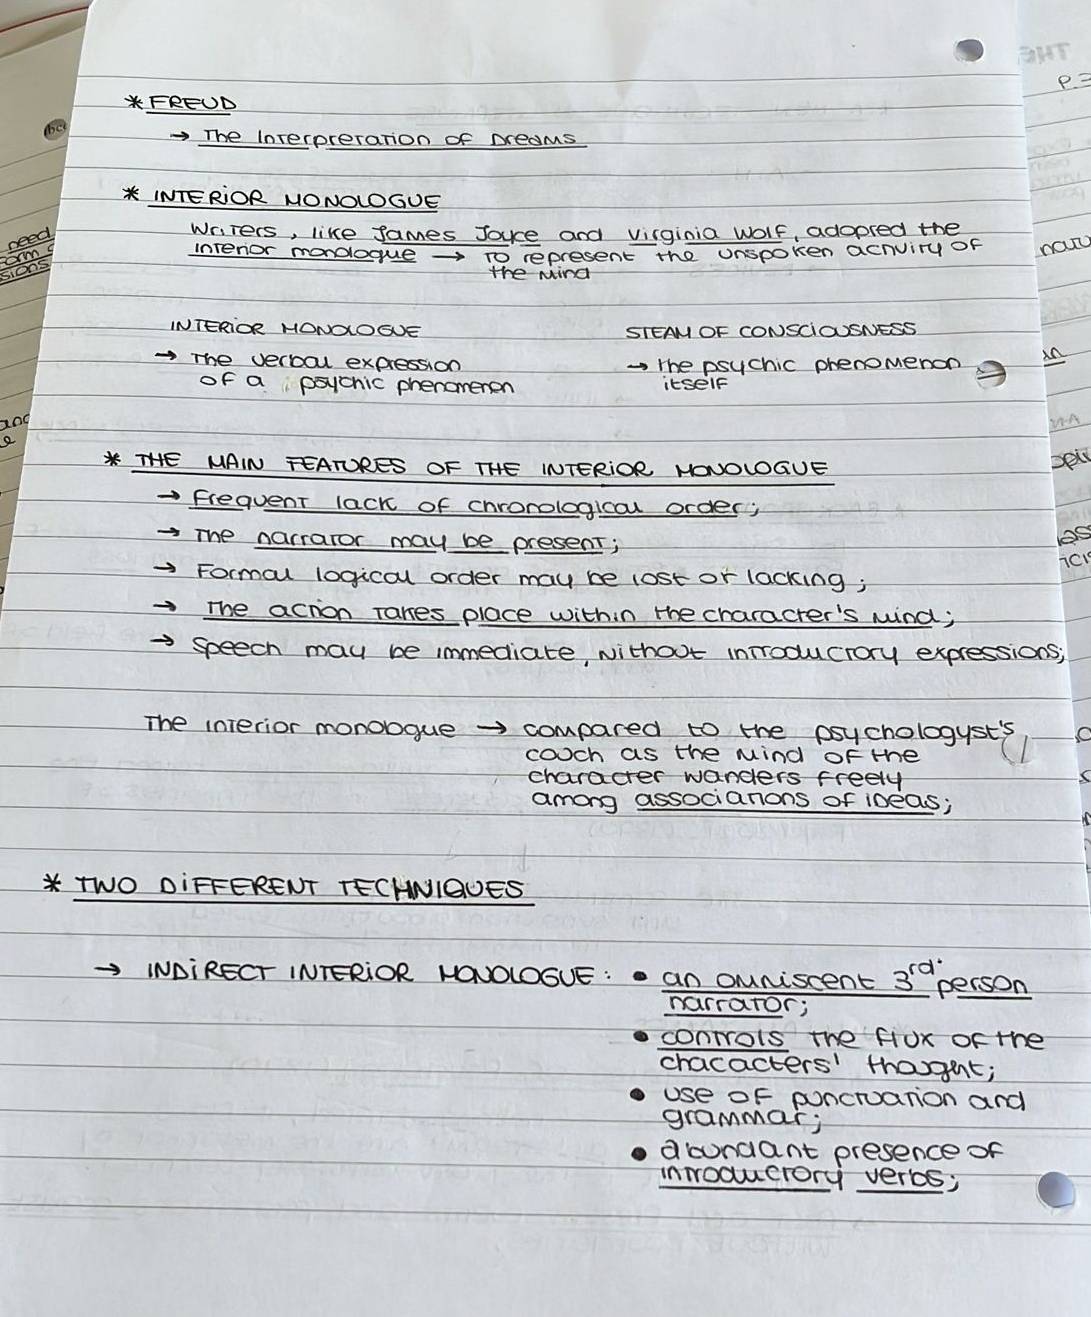 * FREUD
→ The Interpretation of Dreams
* INTERIOR MONOLOGUE
Writers, like James Joyce and Virginia Wolf, adopted the
interior monologue → to represent the unspoken activity of
the mind
INTERIOR MONOLOGUE
→ The verbal expression
of a psychic phenomenon
STEAM OF CONSCIOUSNESS
→ the psychic phenomenon
itself
* THE MAIN FEATURES OF THE INTERIOR MONOLOGUE
→ Frequent lack of chronological order;
→ The narrator may be present;
→ Formal logical order may be lost or lacking;
→ The action takes place within the character's mind;
→ Speech may be immediate, without introductory expressions;
The interior monologue → compared to the psychologyst's
couch as the mind of the
character wanders freely
among associations of ideas;
* TWO DIFFERENT TECHNIQUES
→ INDIRECT INTERIOR MONOLOGUE: • an omniscent 3rd person
narrator;
• controls the flux of the
chacacters' thought;
• use of punctuation and
grammar;
• abundant presence of
introductory verbs;
need
sions
and